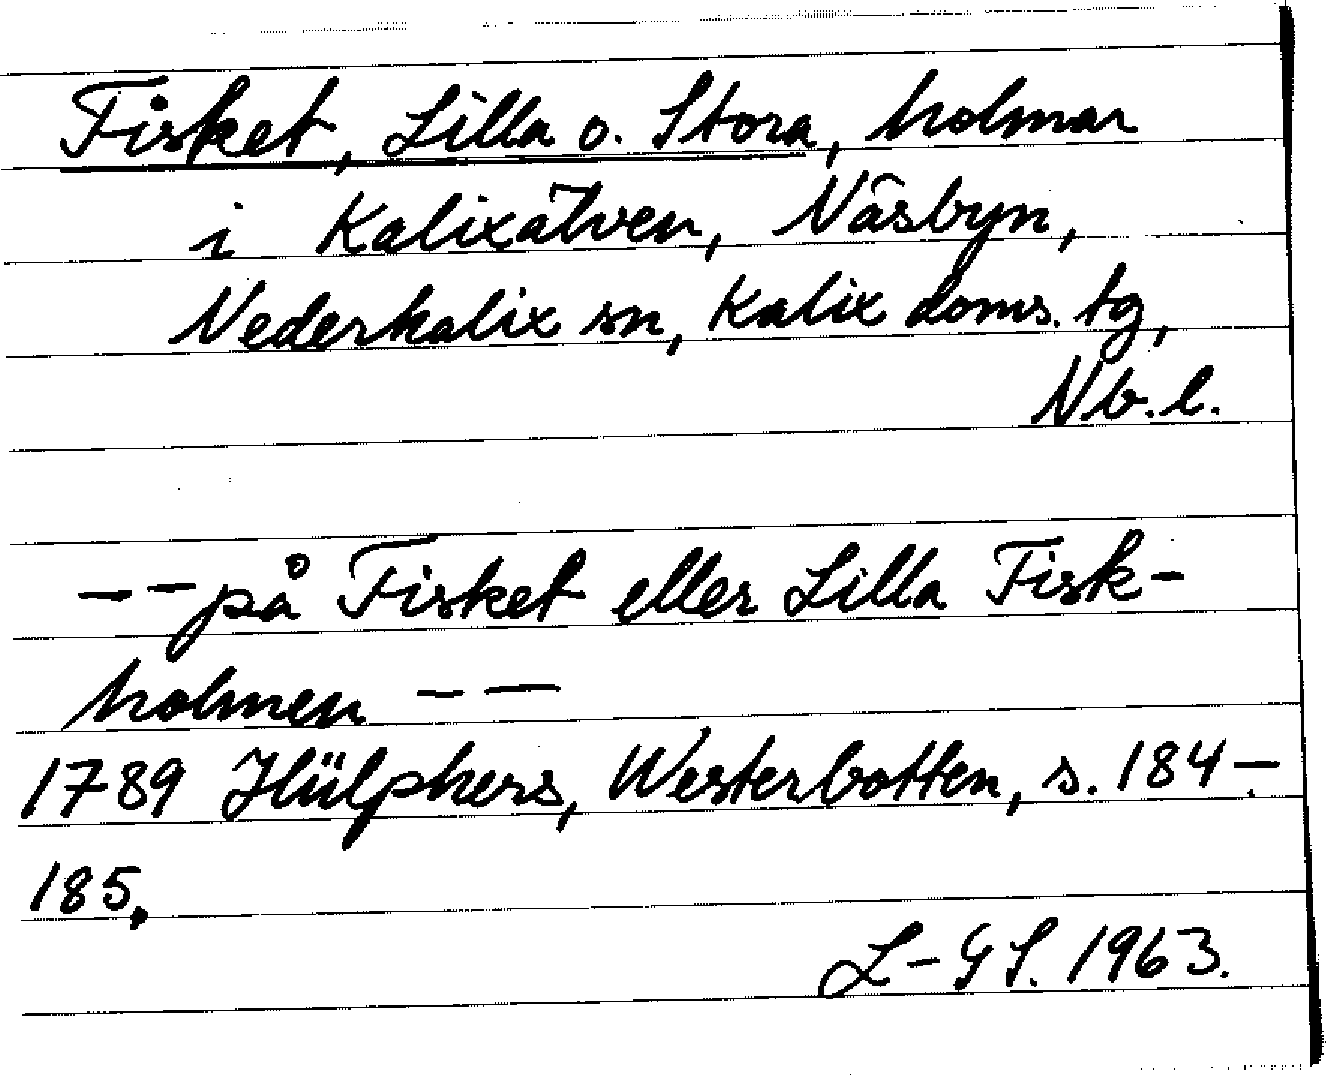 Fisket, Lilla o. Stora, holmar
i Kalixälven, Näsbyn,
Nederkalix sn, Kalix doms. tg,
Nb. l.
— — på Fisket eller Lilla Fisk-
holmen — —
1789 Hülphers, Westerbotten, s. 184 –
185.
L-GS. 1963.